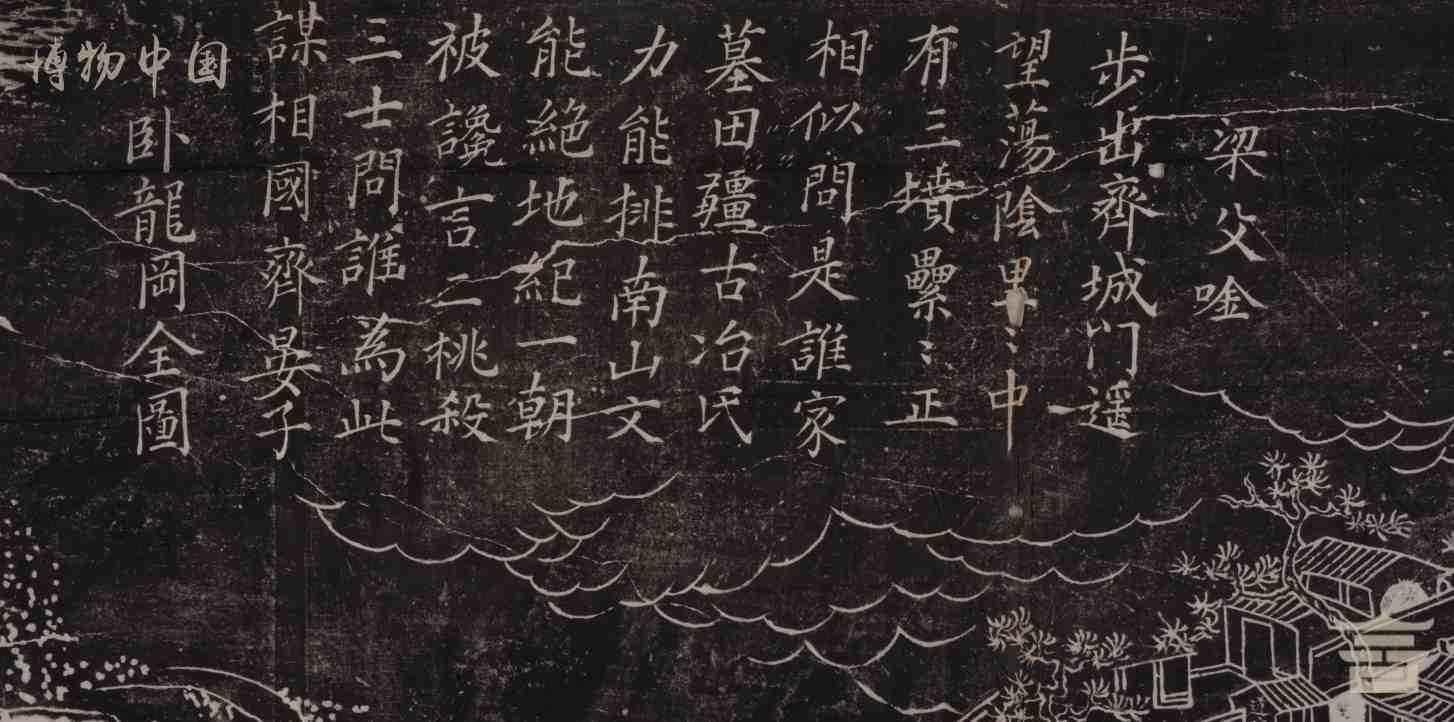 梁父唫
步出齊城門遥
望蕩陰里〻中
有三墳纍〻正
相似問是誰家
墓田疆古冶氏
力能排南山文
能絕地紀一朝
被讒言二桃殺
三士問誰為此
謀相國齊晏子
卧龍岡全圖
博物中国